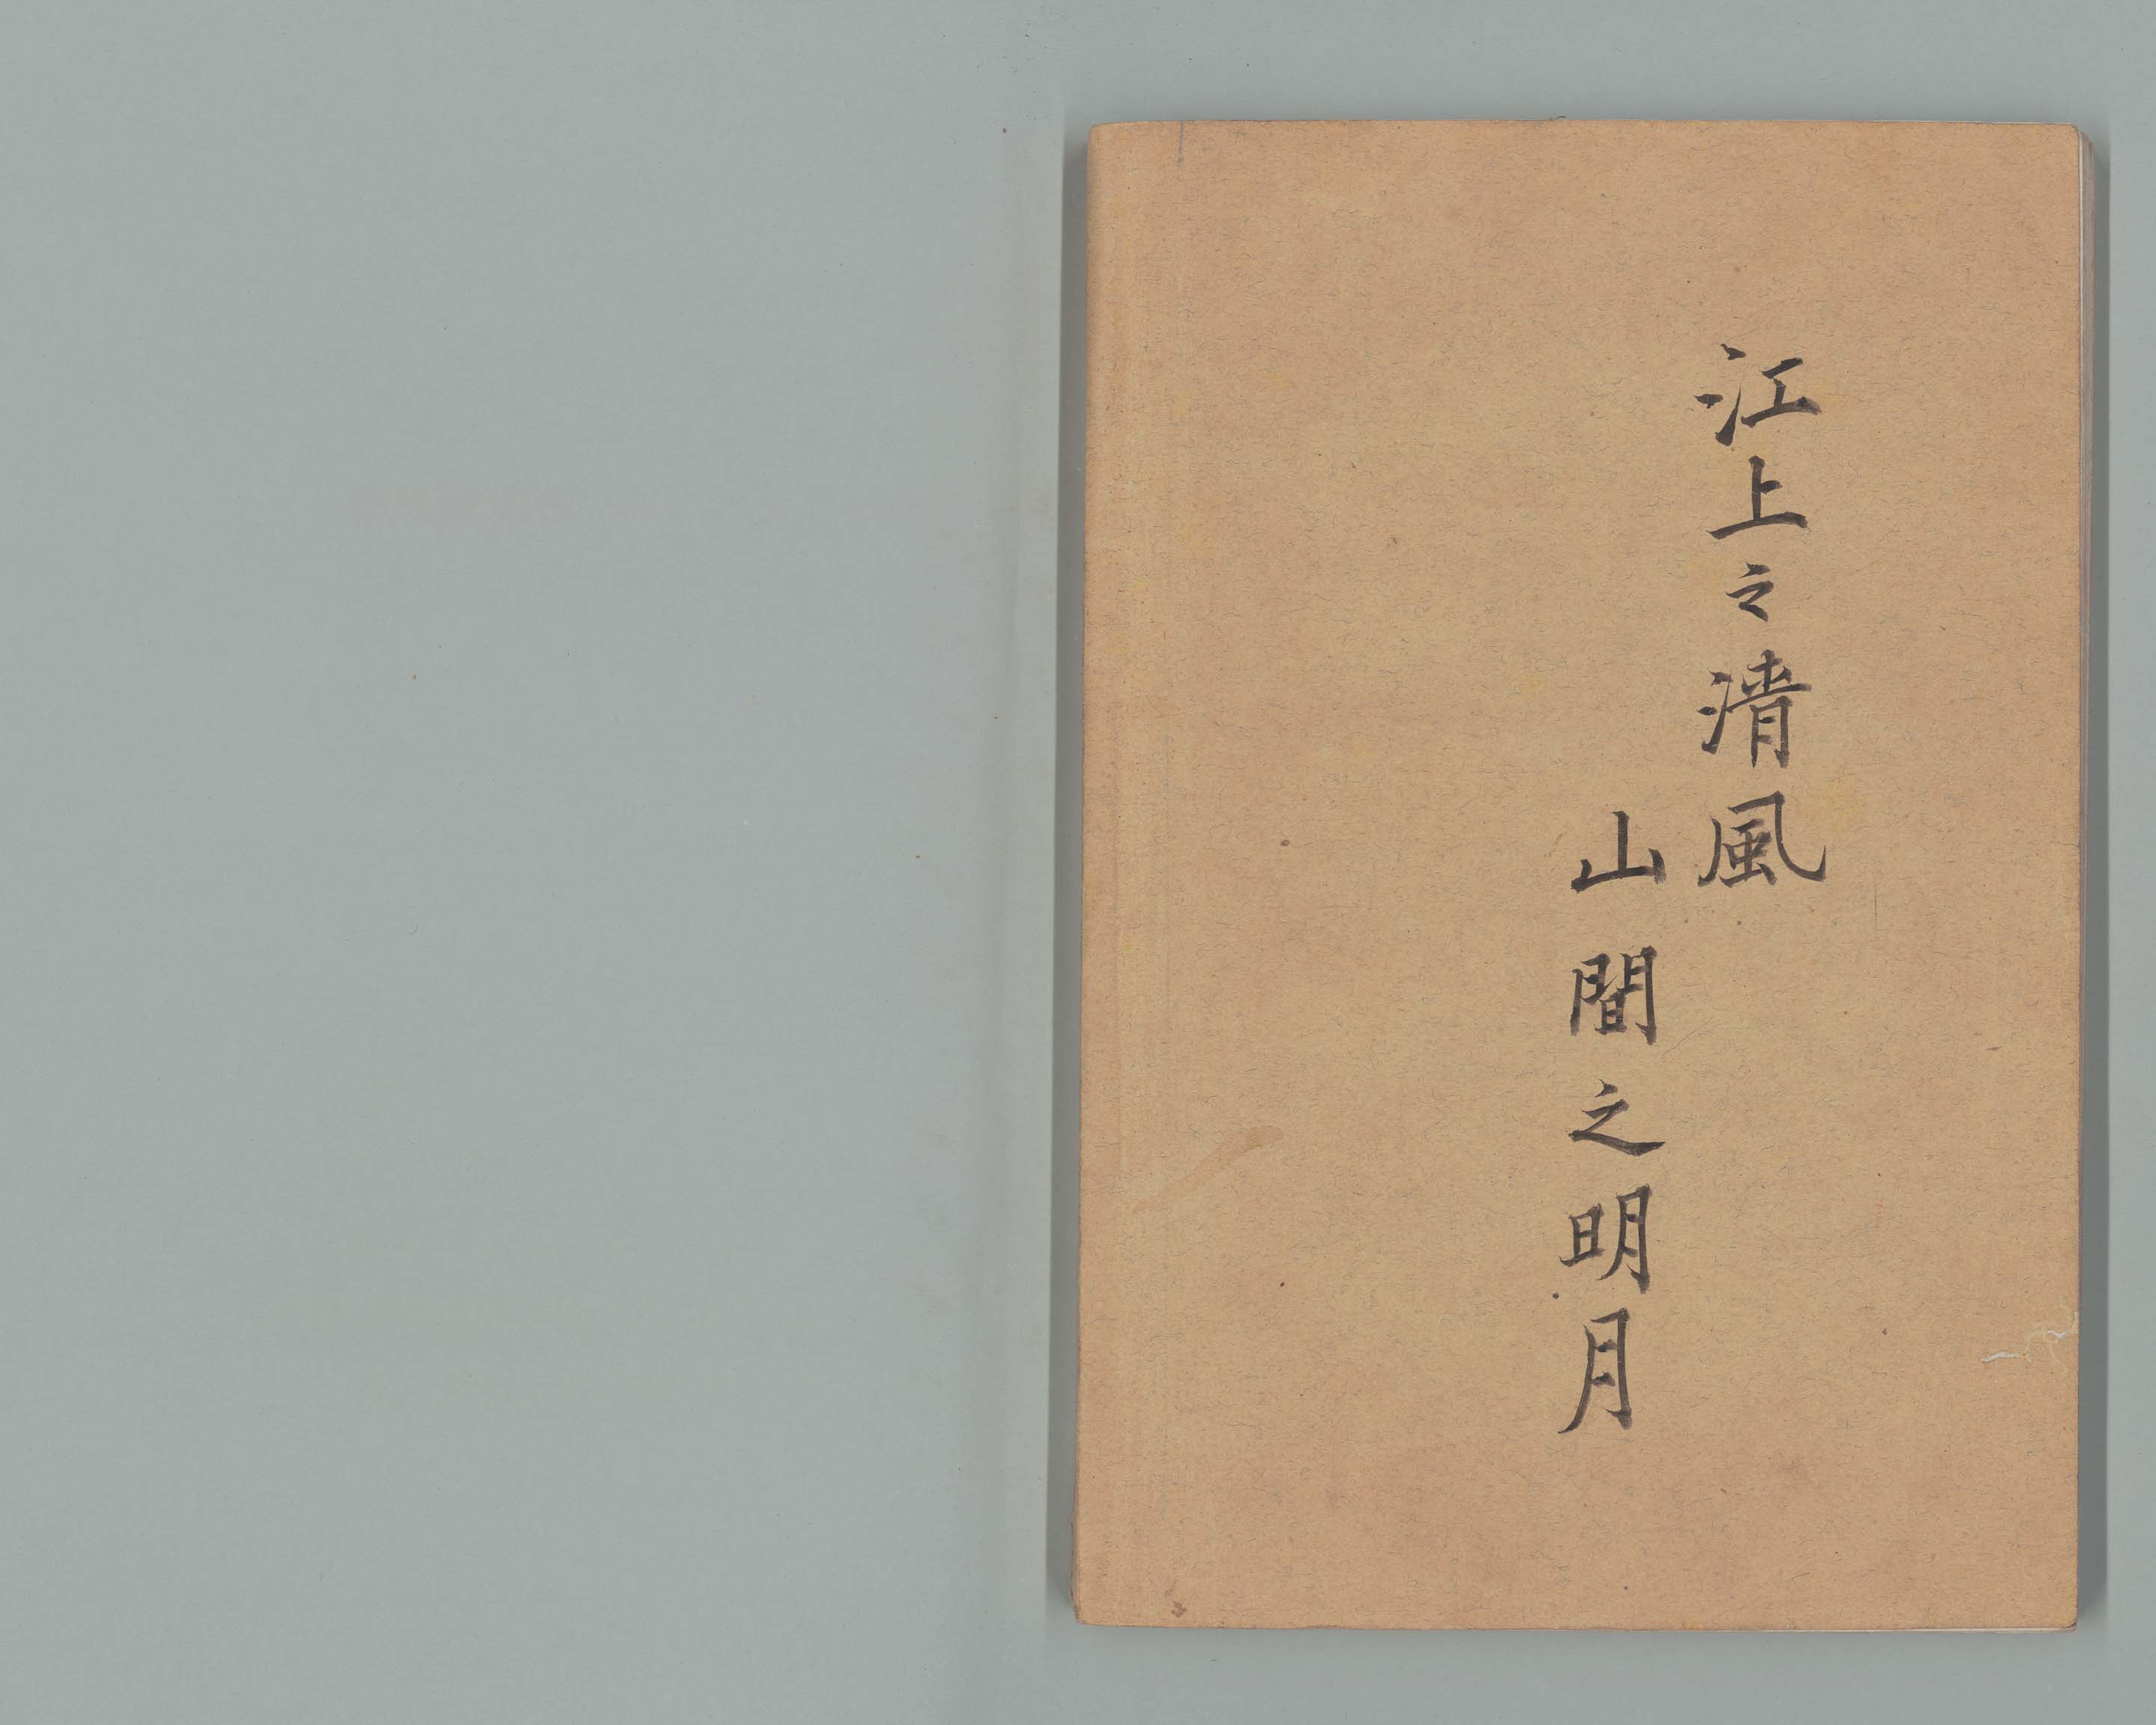 江上之清風
山間之明月